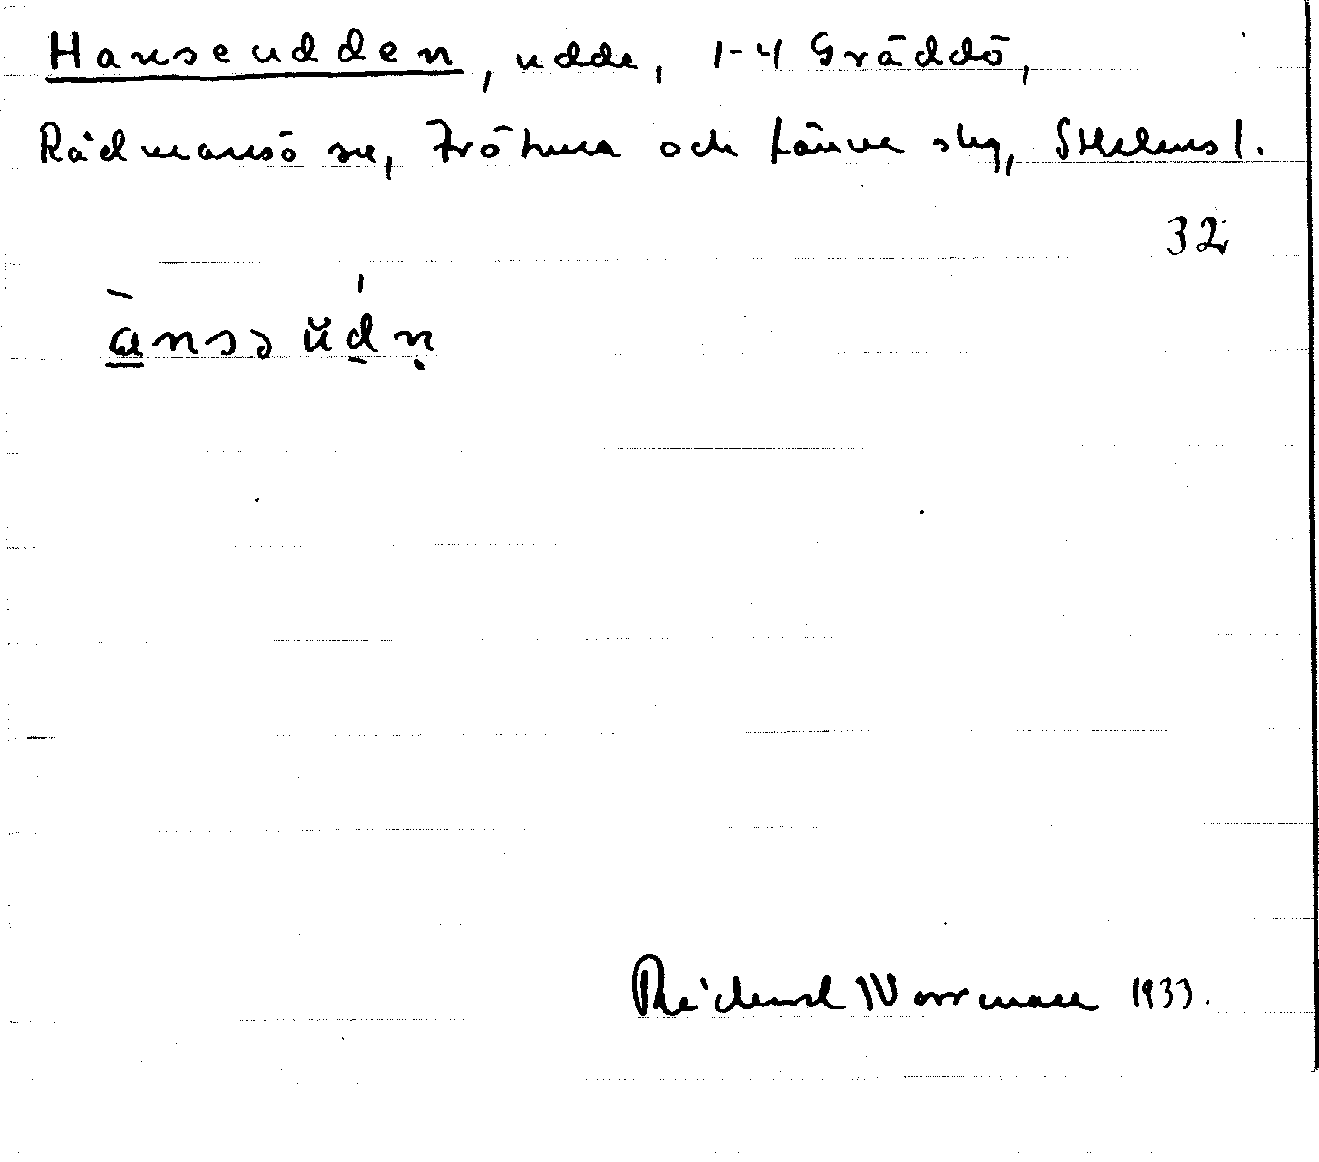 Hanseudden, udde, 1-4 Gräddö,
Rådmansö sn, Frötuna och Länna slg, Sthlms l.
32
ànsə ŭdn
Richard Worrman 1933.